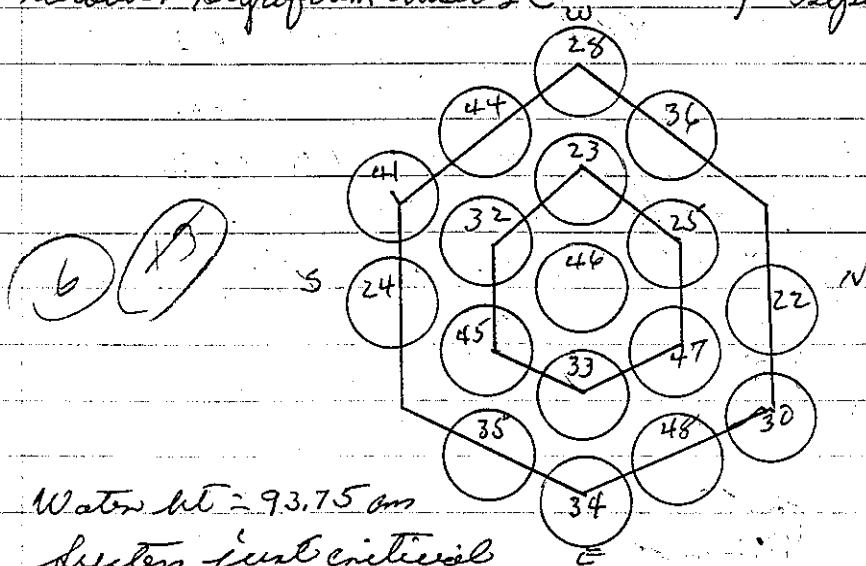 W
28
44 36
41 23
32 25
6 13 S 24 46 22 N
45 33 47
35 48 30
34
E
Water ht = 93.75 cm
System just critical